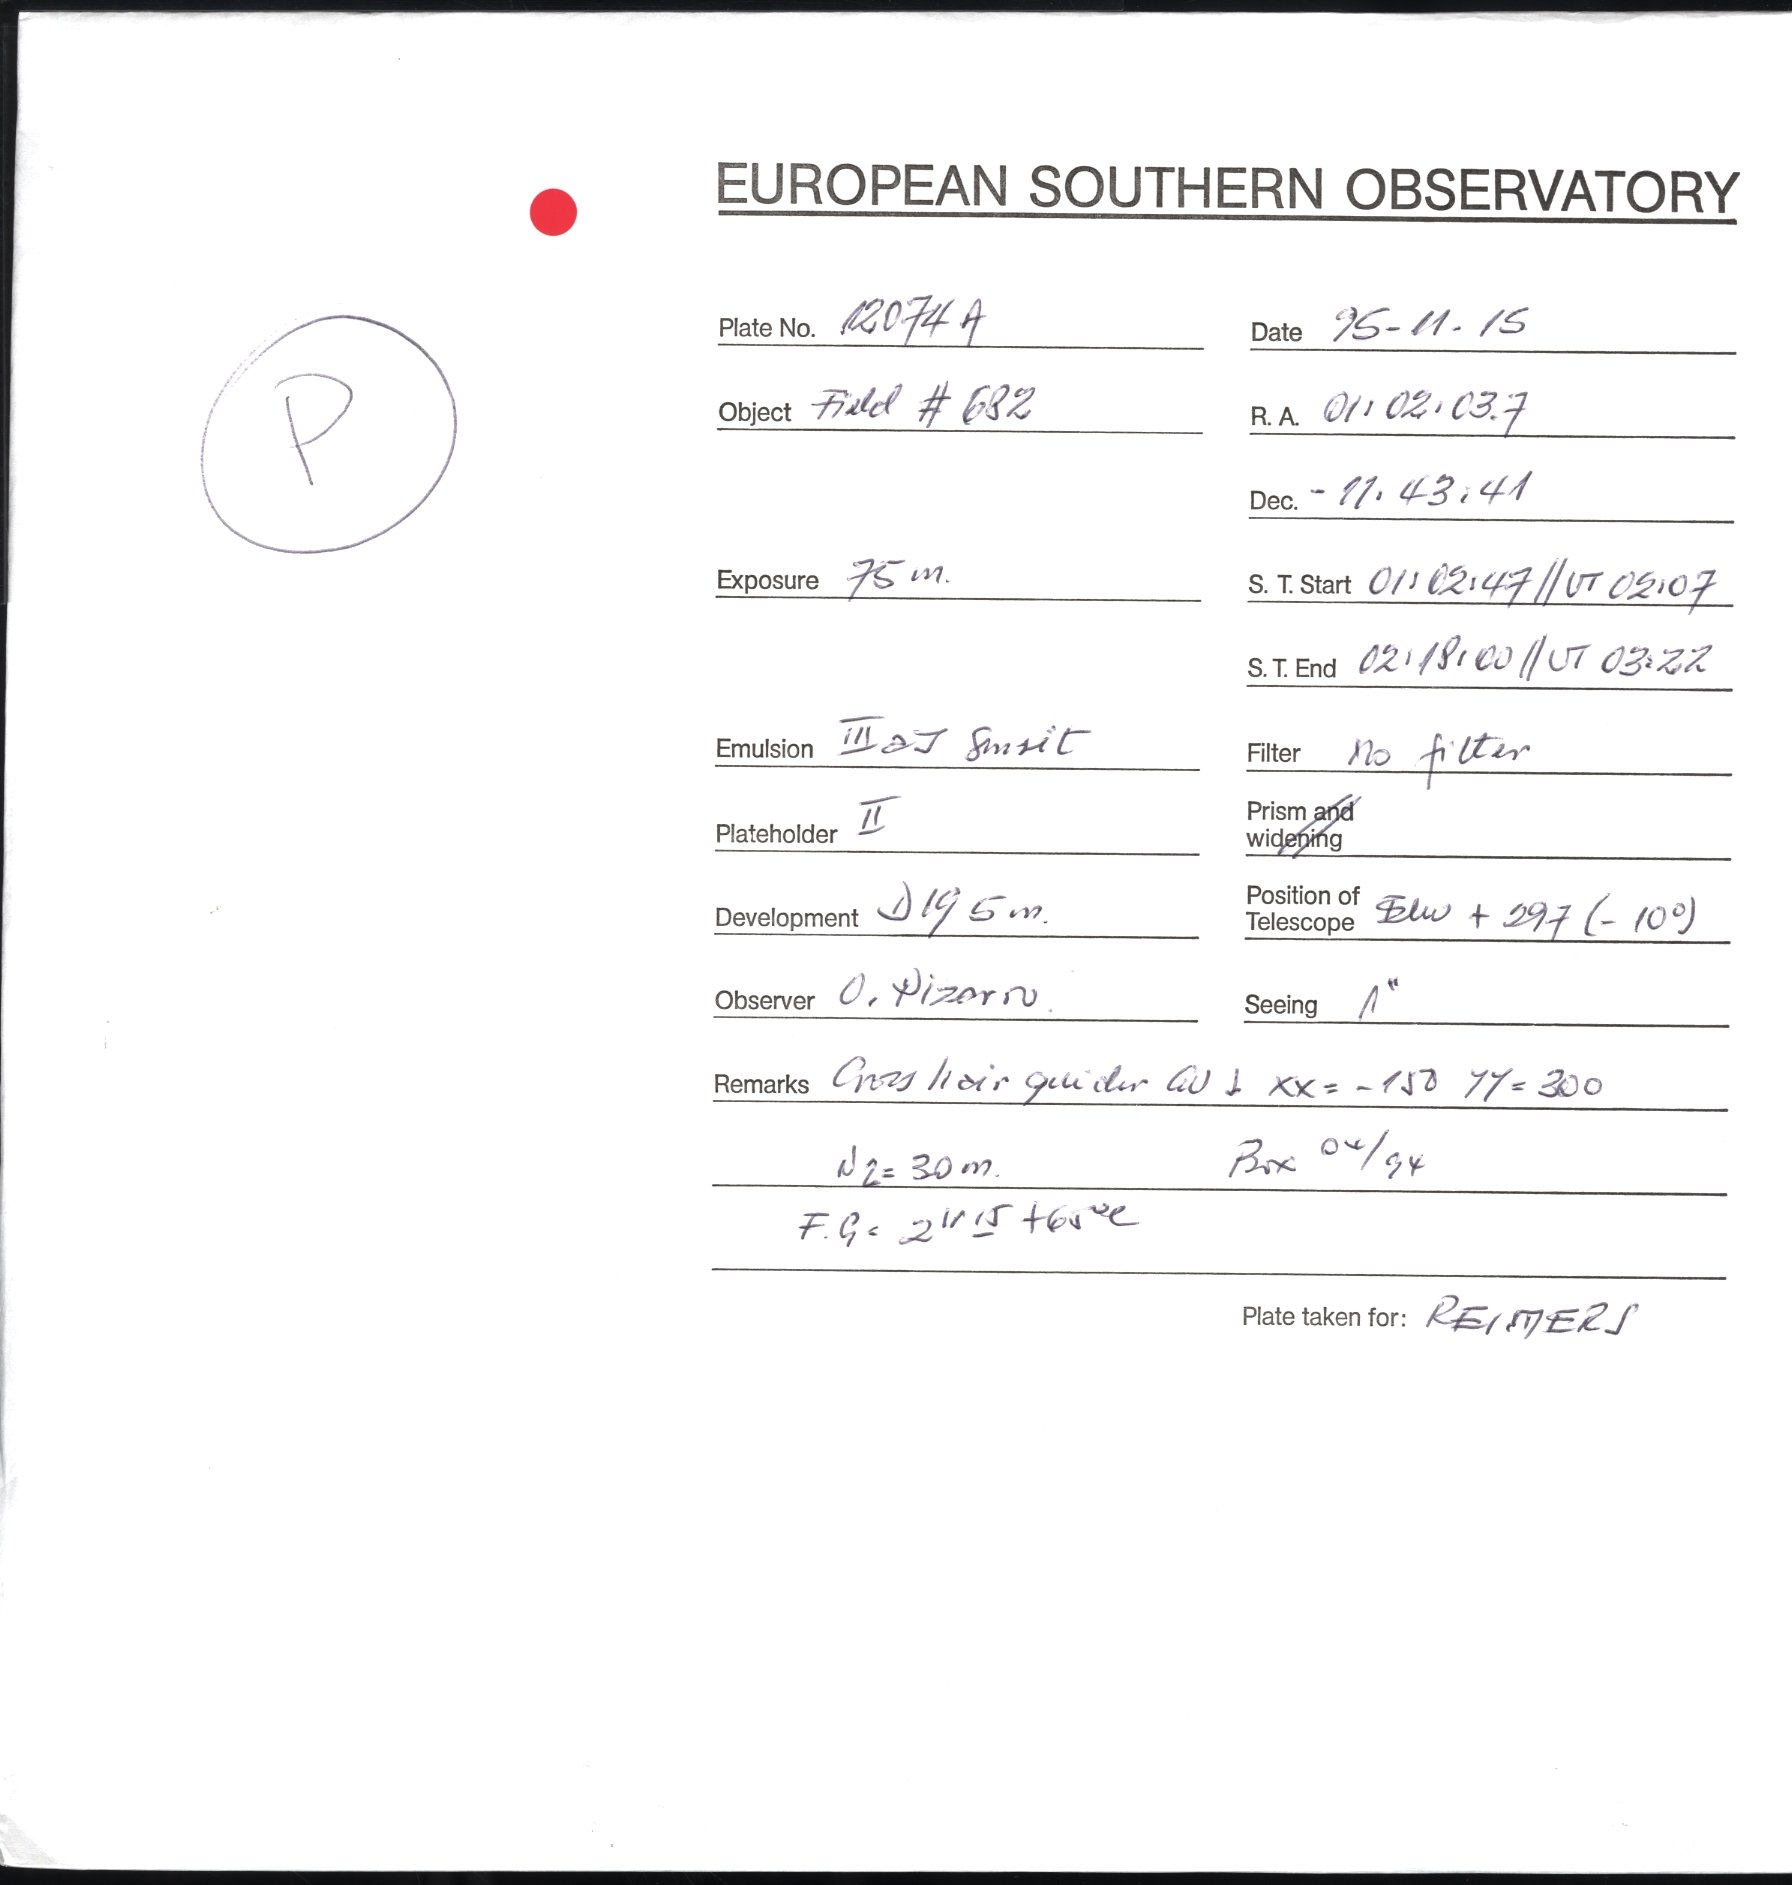 EUROPEAN SOUTHERN OBSERVATORY
P
Plate No. 12074 A
Date 95-11-15
Object Field # 682
R. A. 01:02:03.7
Dec. -11:43:41
Exposure 75 m.
S. T. Start 01:02:47 // UT 02:07
S. T. End 02:18:00 // UT 03:22
Emulsion III aJ Sensit
Filter No filter
Plateholder II
Prism and
widening
Development D19 5 m.
Position of
Telescope + 297 (-10°)
Observer O. Pizarro.
Seeing 1"
Remarks Cross hair guider xx = -150 yy = 300
N2 = 30 m. Box 04/94
F.G =
Plate taken for: REIMERS